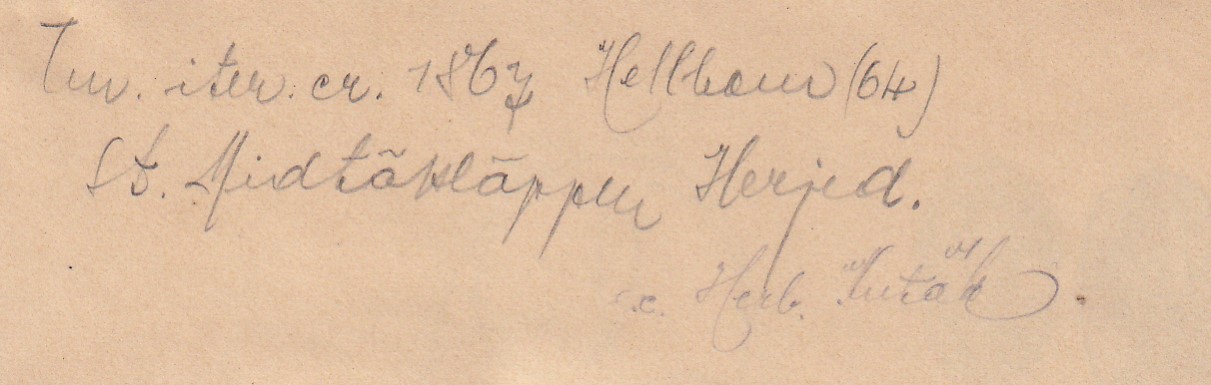 Inv. iter. cr. 1867 Hellbom (64)
St. Midtåkläppen Herjed.
c. Herb.